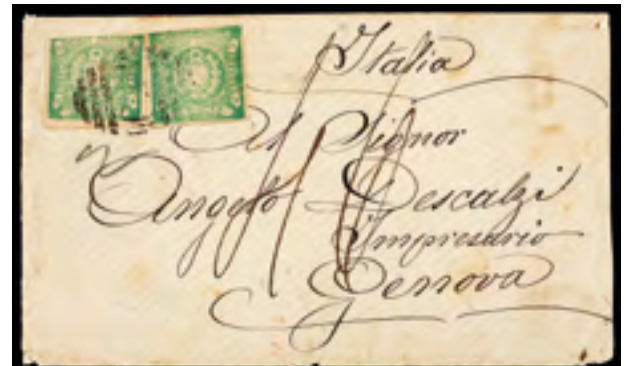 Italia
Al Signor
Angelo Descalzi
Impresario
Genova